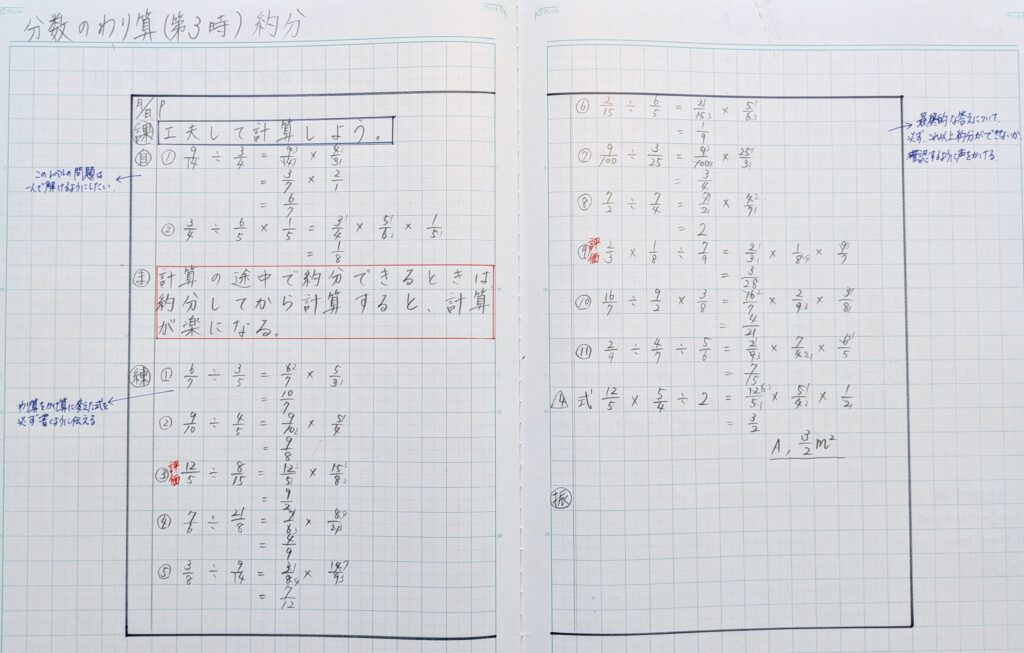 分数のわり算(第3時)約分
月/日 P
練 工夫して計算しよう。
自 ① 9/14 ÷ 3/4 = 9/14 × 4/3
= 3/7 × 2/1
= 6/7
このレベルの問題は
一人で解けるようにしたい。
② 3/4 ÷ 6/5 × 1/5 = 3/4 × 5/6 × 1/5
= 1/8
ま 計算の途中で約分できるときは、
約分してから計算すると、計算
が楽になる。
練 ① 6/7 ÷ 3/5 = 6/7 × 5/3
= 10/7
わり算をかけ算に変えた式を
必ず書くように伝える
② 9/10 ÷ 4/5 = 9/10 × 5/4
= 9/8
③ 評価 12/5 ÷ 8/15 = 12/5 × 15/8
= 9/2
④ 7/6 ÷ 21/8 = 7/6 × 8/21
= 4/9
⑤ 3/8 ÷ 9/14 = 3/8 × 14/9
= 7/12
⑥ 2/15 ÷ 6/5 = 2/15 × 5/6
= 1/9
最終的な答えについて、
必ず、これ以上約分ができないか
確認するように声をかける
⑦ 9/100 ÷ 3/25 = 9/100 × 25/3
= 3/4
⑧ 7/2 ÷ 7/4 = 7/2 × 4/7
= 2
⑨ 評価 2/3 × 1/8 ÷ 7/9 = 2/3 × 1/8 × 9/7
= 3/28
⑩ 16/7 ÷ 9/2 × 3/8 = 16/7 × 2/9 × 3/8
= 4/21
⑪ 2/9 ÷ 4/7 ÷ 5/6 = 2/9 × 7/4 × 6/5
= 7/15
4 式 12/5 × 5/4 ÷ 2 = 12/5 × 5/4 × 1/2
= 3/2
A, 3/2 m²
振